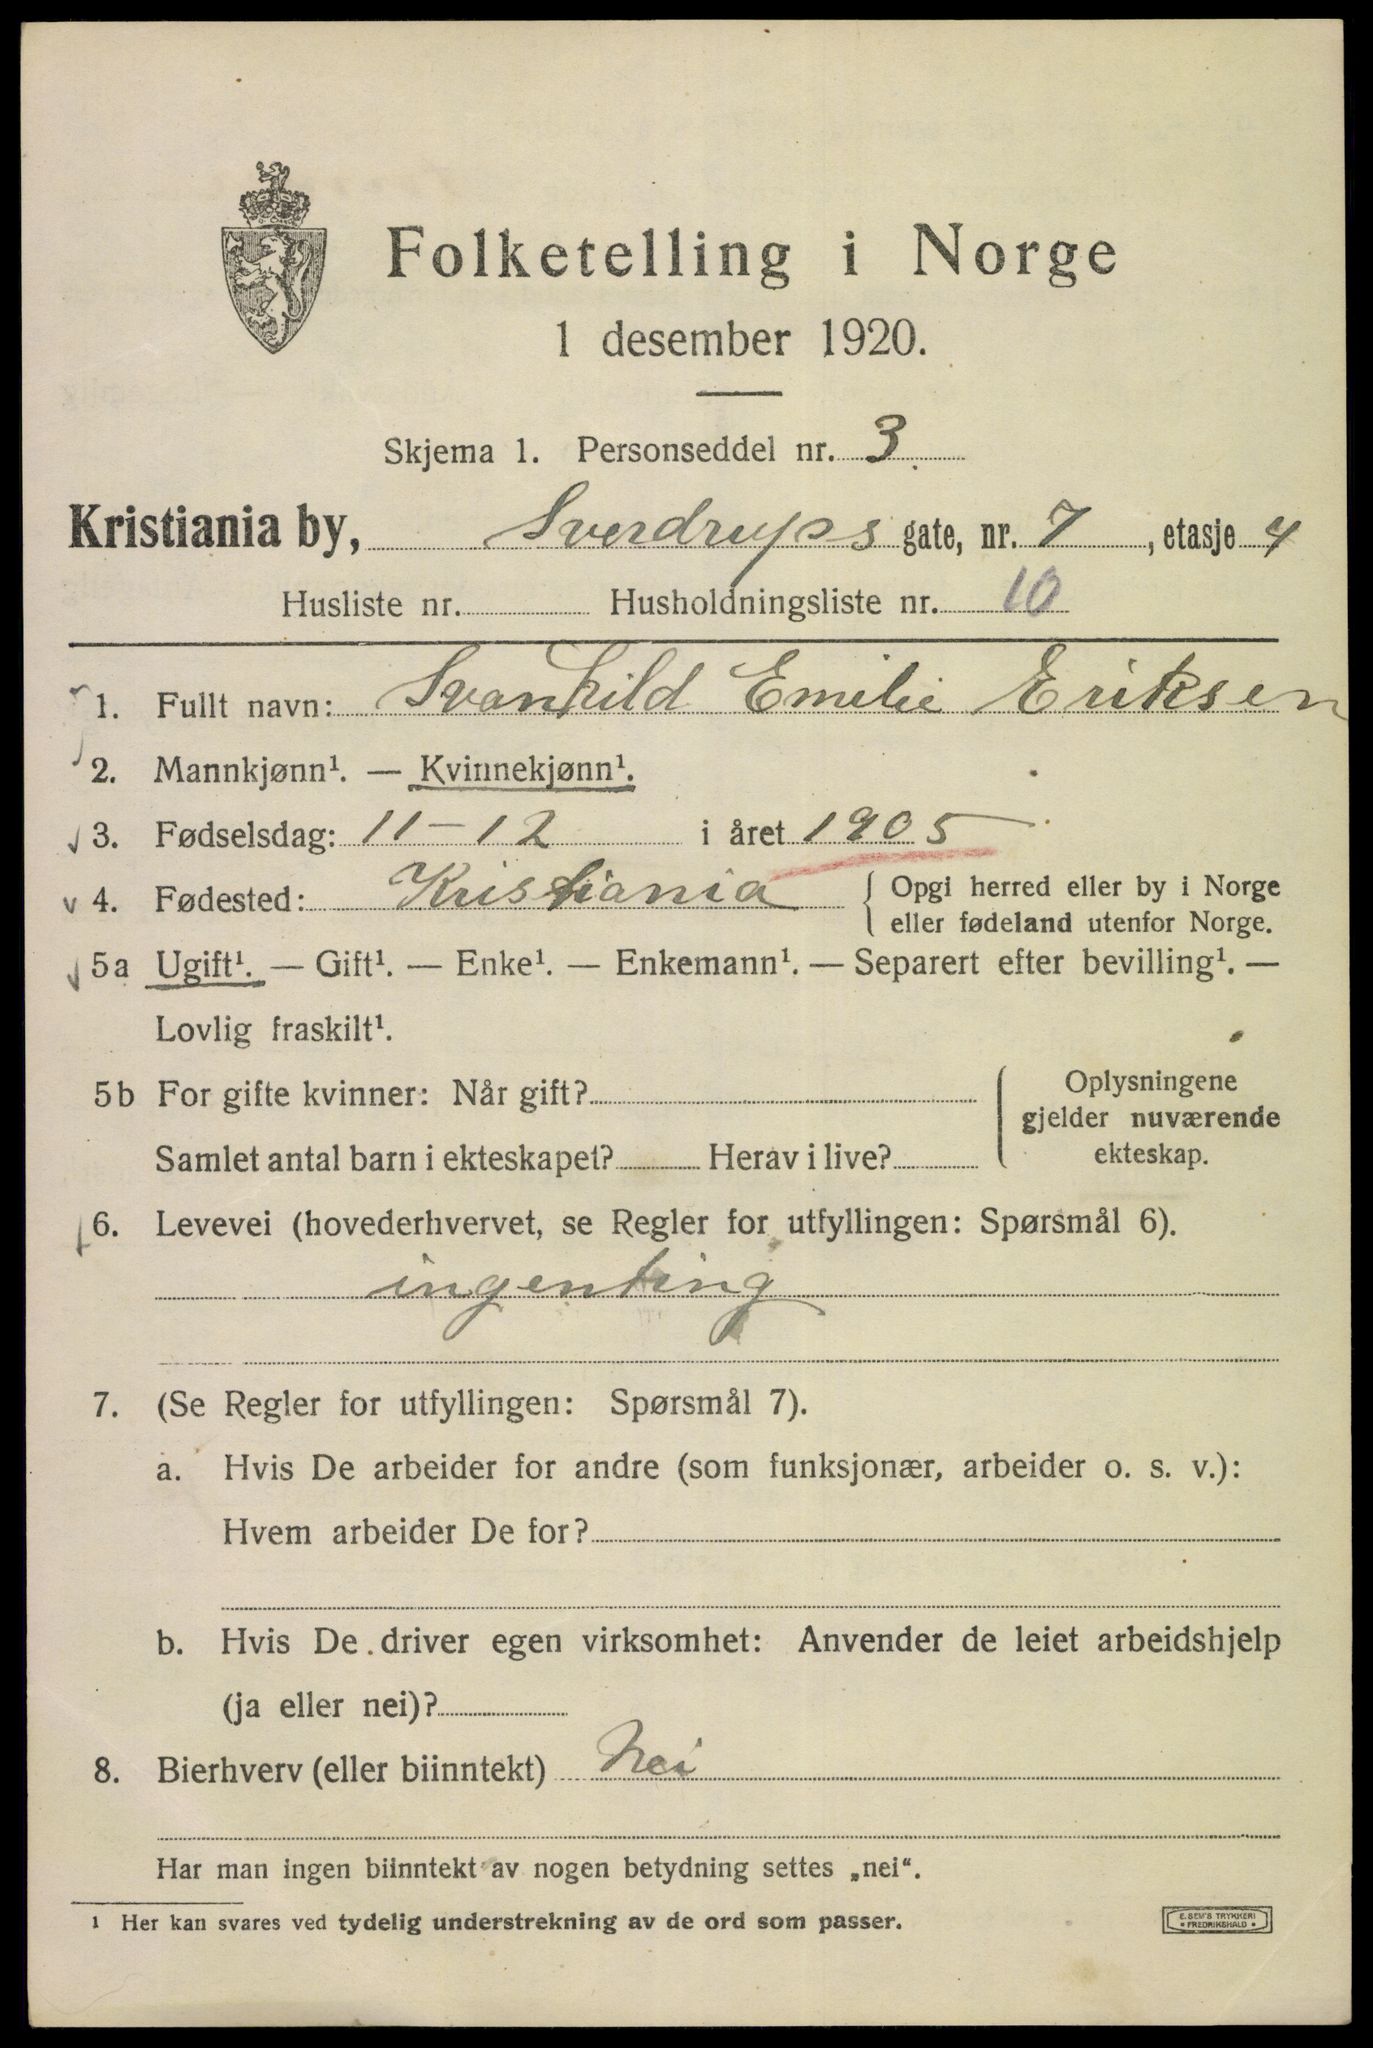 Folketelling i Norge
1 desember 1920.
Skjema 1. Personseddel nr. 3
Kristiania by, Sverdrups gate, nr. 7, etasje 4
Husliste nr. Husholdningsliste nr. 10
1. Fullt navn: Svanhild Emilie Eriksen
2. Mannkjønn¹. — Kvinnekjønn¹.
3. Fødselsdag: 11-12 i året 1905
4. Fødested: Kristiania { Opgi herred eller by i Norge
eller fødeland utenfor Norge.
5a Ugift¹. — Gift¹. — Enke¹. — Enkemann¹. — Separert efter bevilling¹. —
Lovlig fraskilt¹.
5b For gifte kvinner: Når gift? Oplysningene
gjelder nuværende
Samlet antal barn i ekteskapet? Herav i live? ekteskap.
6. Levevei (hovederhvervet, se Regler for utfyllingen: Spørsmål 6).
ingenting
7. (Se Regler for utfyllingen: Spørsmål 7).
a. Hvis De arbeider for andre (som funksjonær, arbeider o. s. v.):
Hvem arbeider De for?
b. Hvis De driver egen virksomhet: Anvender de leiet arbeidshjelp
(ja eller nei)?
8. Bierhverv (eller biinntekt) Nei
Har man ingen biinntekt av nogen betydning settes „nei“.
1 Her kan svares ved tydelig understrekning av de ord som passer.
E. SEM'S TRYKKERI
• FREDRIKSHALD •